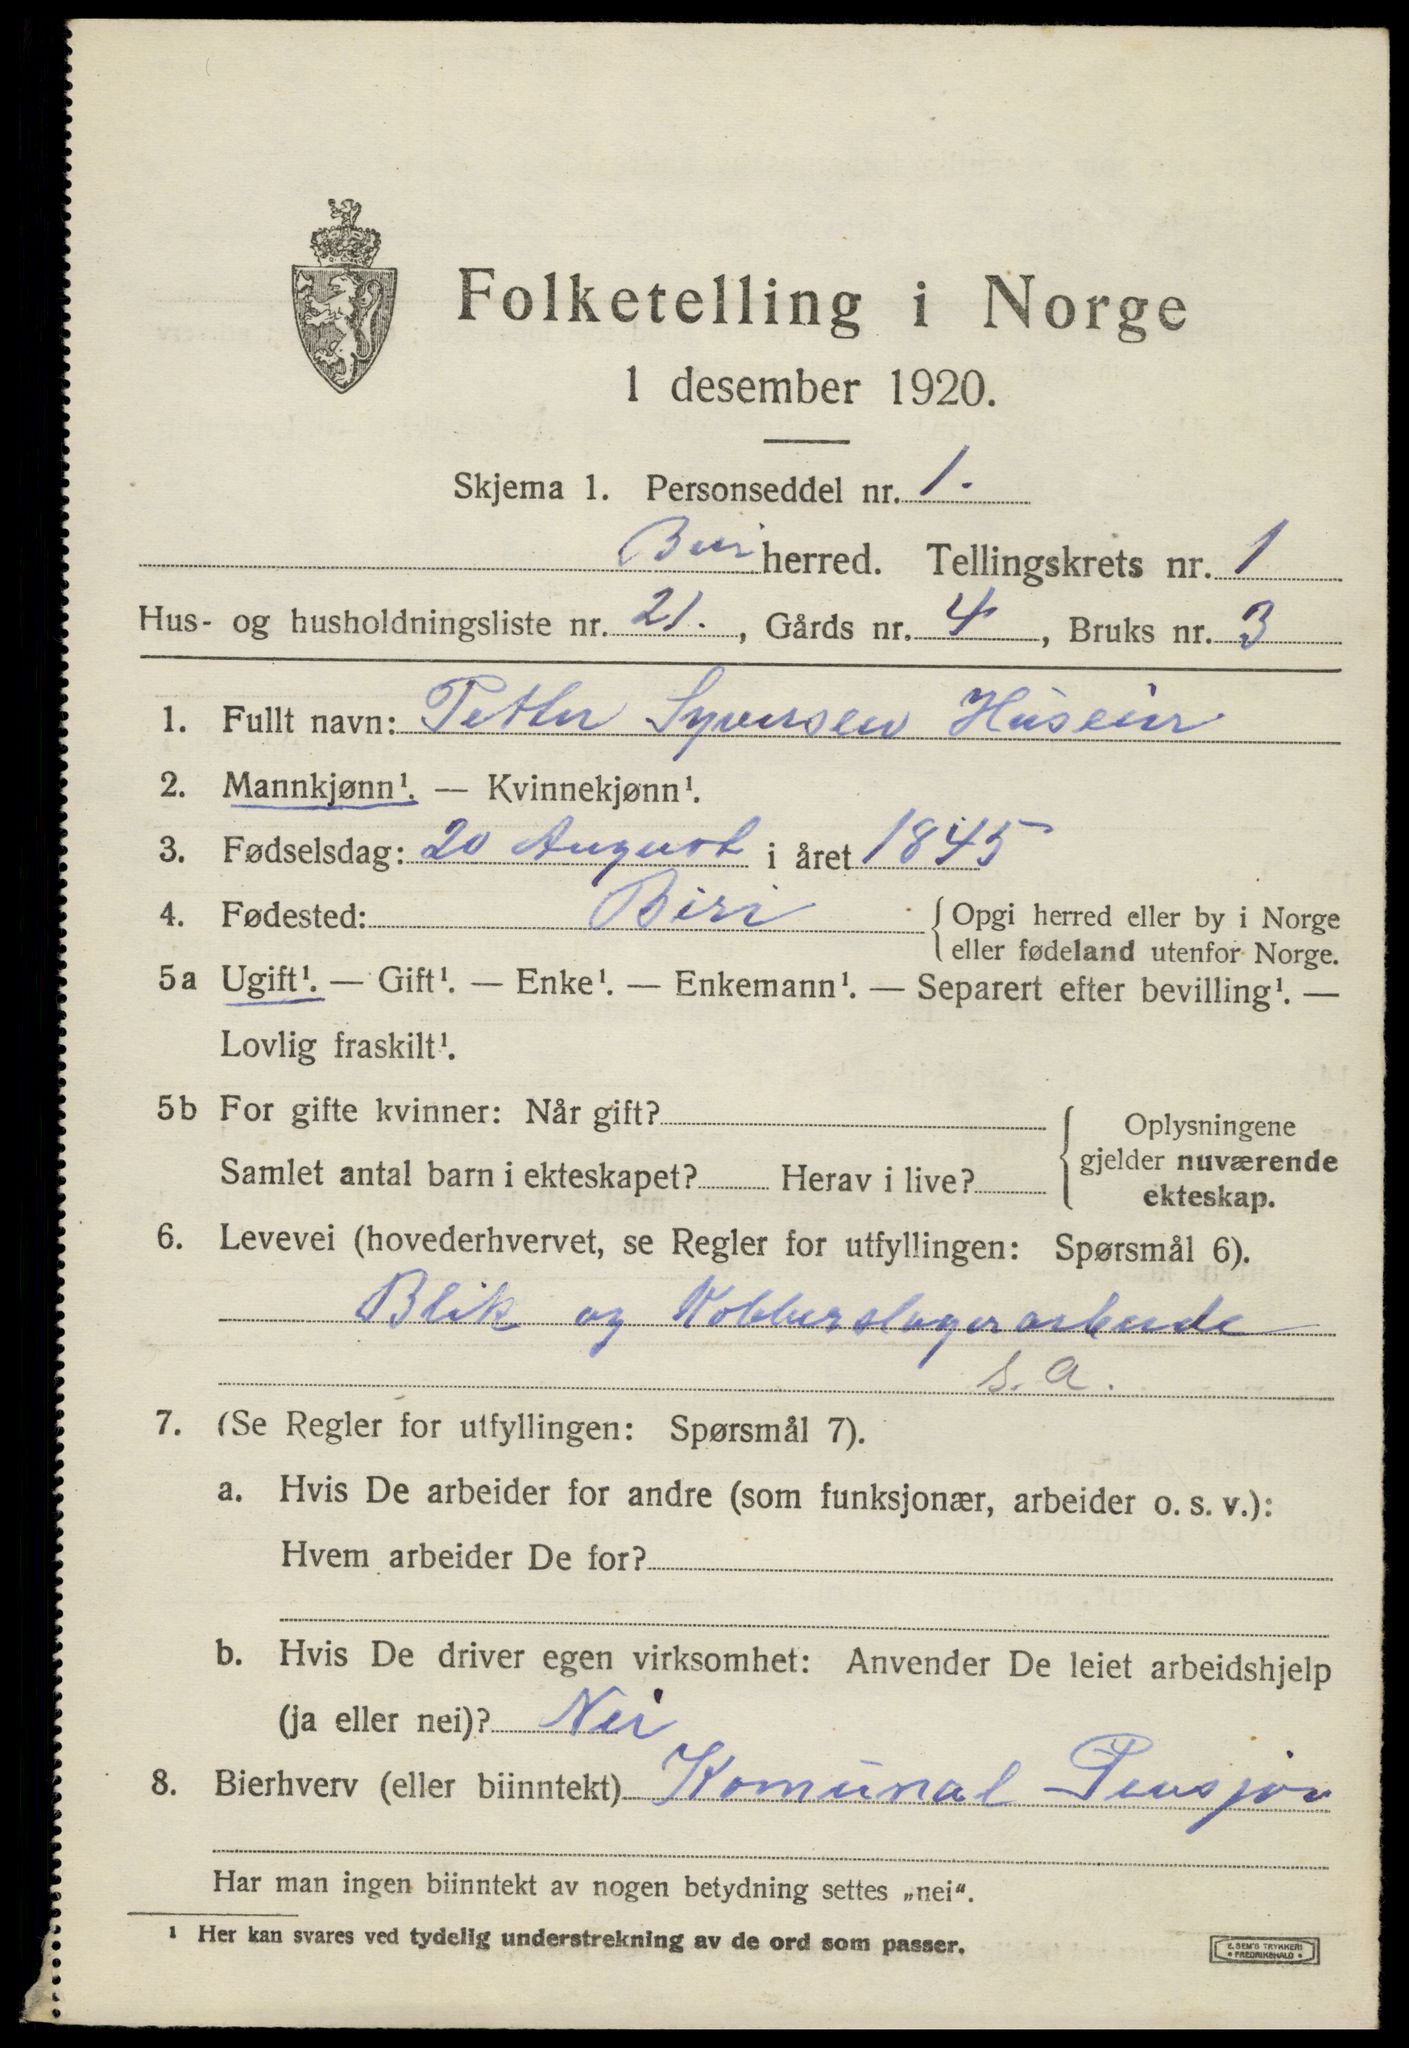 Folketelling i Norge
1 desember 1920.
Skjema 1. Personseddel nr. 1.
Biri herred. Tellingskrets nr. 1
Hus- og husholdningsliste nr. 21., Gårds nr. 4, Bruks nr. 3
1. Fullt navn: Petter Syversen
2. Mannkjønn¹. — Kvinnekjønn¹.
3. Fødselsdag: 20 August i året 1845
4. Fødested: Biri { Opgi herred eller by i Norge
eller fødeland utenfor Norge.
5a Ugift¹. — Gift¹. — Enke¹. — Enkemann¹. — Separert efter bevilling¹. —
Lovlig fraskilt¹.
5b For gifte kvinner: Når gift? { Oplysningene
gjelder nuværende
Samlet antal barn i ekteskapet? Herav i live? ekteskap.
6. Levevei (hovederhvervet, se Regler for utfyllingen: Spørsmål 6).
Blik og Kobberslagerarbeide
s. a.
7. (Se Regler for utfyllingen: Spørsmål 7).
a. Hvis De arbeider for andre (som funksjonær, arbeider o. s. v.):
Hvem arbeider De for?
b. Hvis De driver egen virksomhet: Anvender De leiet arbeidshjelp
(ja eller nei)? Nei
8. Bierhverv (eller biinntekt) Komunal Pensjon
Har man ingen biinntekt av nogen betydning settes „nei“.
¹ Her kan svares ved tydelig understrekning av de ord som passer.
E. SEM'S TRYKKERI
• FREDRIKSHALD •